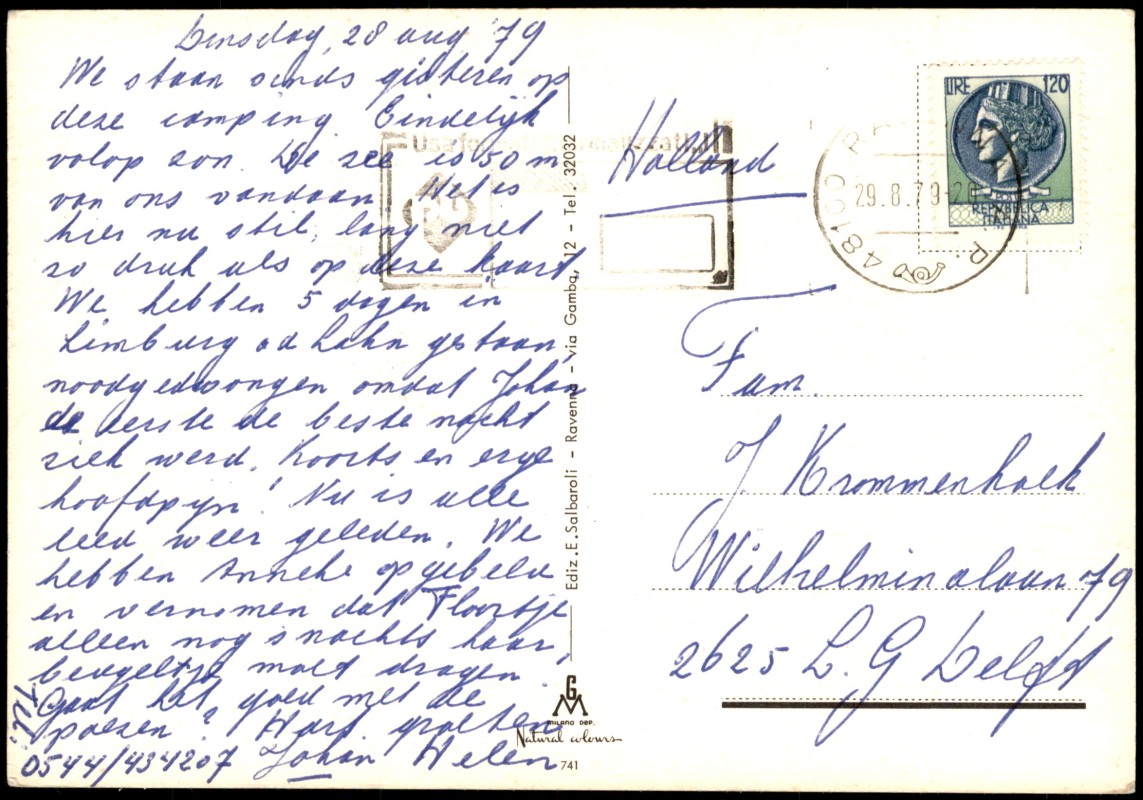 Dinsdag, 28 aug '79
We staan sinds gisteren op
deze camping. Eindelijk
volop zon. De zee is 50 m
van ons vandaan. Het is
hier nu stil, lang niet
zo druk als op deze kaart
We hebben 5 dagen in
Limburg a d Lahn gestaan,
noodgedwongen omdat Johan
de eerste de beste nacht
ziek werd. Koorts en erge
hoofdpijn! Nu is alle
leed weer geleden. We
hebben Anneke opgebeld
en vernomen dat Floortje
alleen nog 's nachts haar
beugeltje moet dragen.
Gaat het goed met de
poezen? Hart. groeten
Johan Helen
Tel:
0544/434207
Ediz. E. Salbaroli - Ravenna - via Gamba, 12 - Tel. 32032
G M
MILANO DEP.
Natural colours
741
LIRE 120
REPVBBLICA
ITALIANA
48100
29.8.79
Holland
Fam.
J. Krommenhoek
Wilhelminalaan 79
2625 L.G Delft